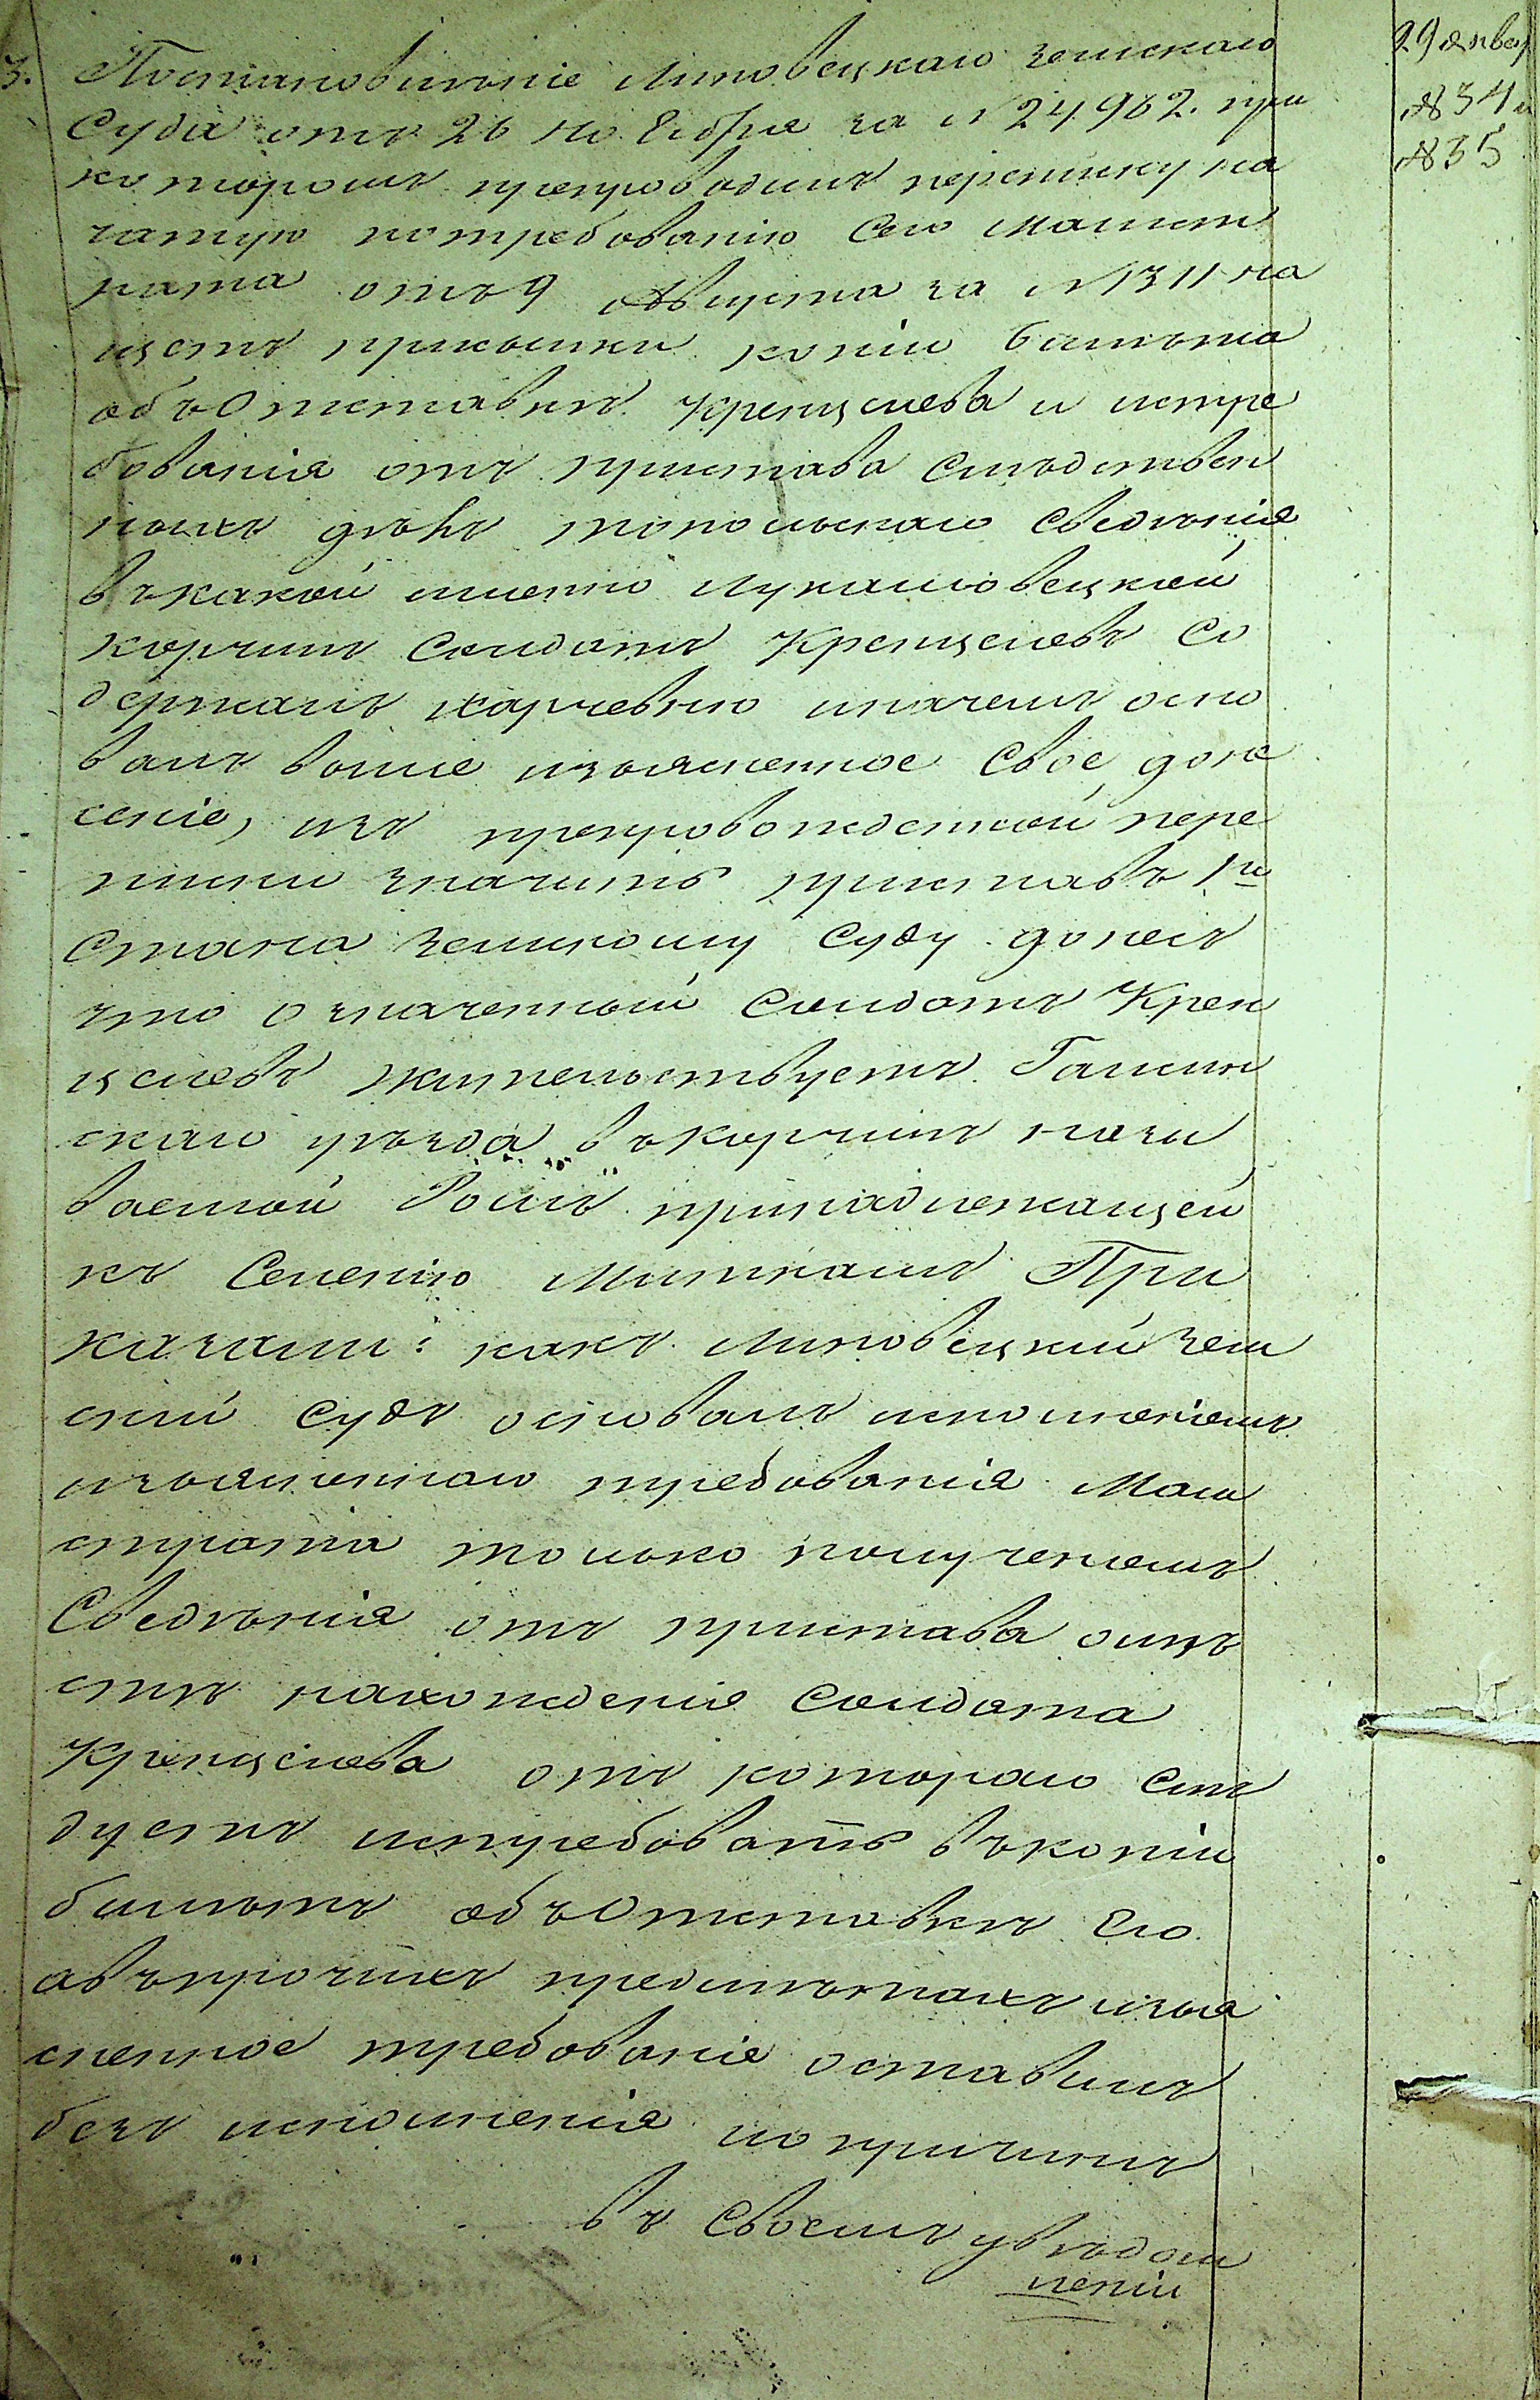 3. Постановленіе Липовецкаго земскаго
Суда отъ 26 Но Ебря за N 24,982. при
которомъ препроводилъ переписку на
чатую потребованію Сего Магист
рата отъ 9 Августа за N 1311 на
щетъ присылки копіи билѣта
объ Отставкѣ Кренцелева и истре
бованія отъ пристава Слѣдствен
ныхъ дѣлъ свѣдѣнія
въ какой именно Лукашовецкой
корчмѣ Солдатъ Кренцелевъ Со
держалъ харчевню и начемъ осно
валъ выше изъясненное Свое доне
сеніе, изъ препровожденной пере
писки значитъ приставъ 1го
Стана Земскому Суду донелъ
что означенный Солдатъ Крен
целевъ жительствуетъ Гайсин
скаго уѣзда въ корчмѣ назы
ваемой Рошѣ принадлежащей
къ Селенію Миткамъ При
казали: какъ Липовецкій Зем
скій Судъ основалъ исполненіемъ
изъясненнаго требованія Маги
страта только полученіемъ
Сведѣнія отъ пристава омѣ
стѣ нахожденія Солдата
Кренцелева отъ котораго Слѣ
дуетъ истребовать въ копіи
билѣтъ объ Отставкѣ Его
а въ прочихъ предмѣтахъ изъя
сненное требованіе оставилъ
безъ исполненія по причинѣ
въ Своемъ увѣдом
леніи
29 январ
№ 34 и
№ 35